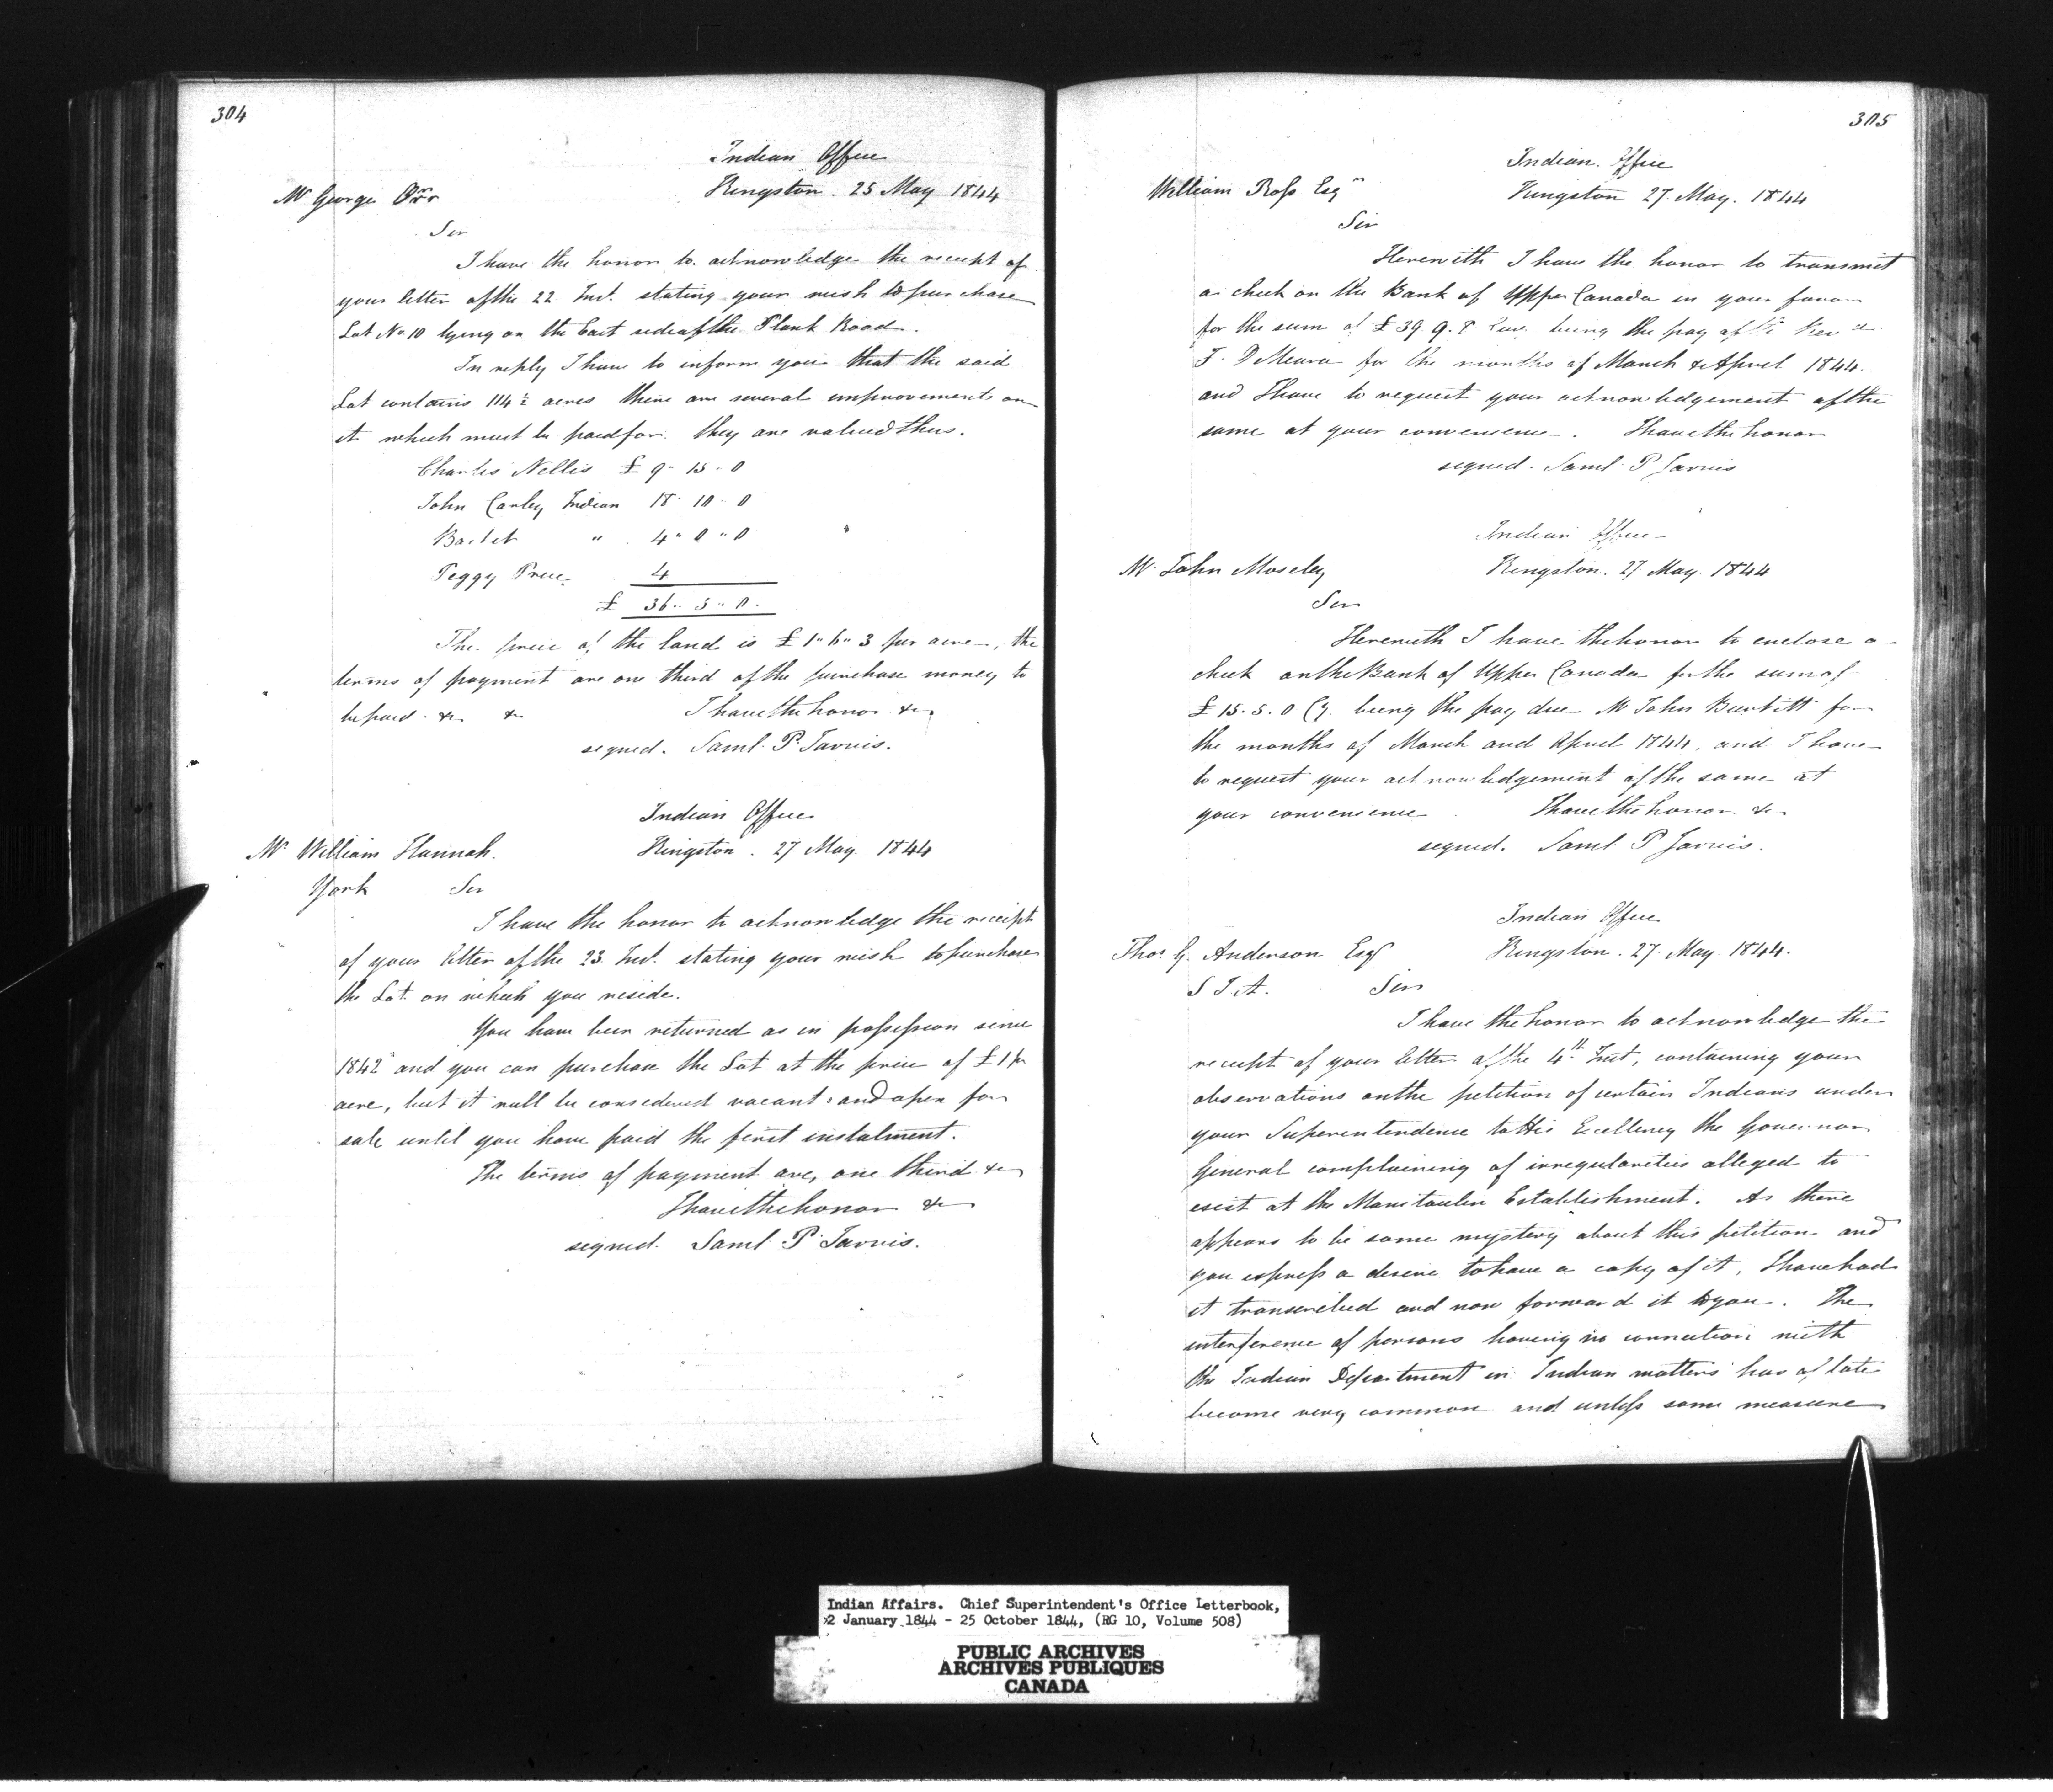 304
Indian Office
Kingston. 25 May 1844
Mr George Orr
Sir
I have the honor to acknowledge the receipt of
your letter of the 22 Inst. stating your wish to purchase
Lot No 10 lying on the East side of the Plank Road.
In reply I have to inform you that the said
Lot contains 114 acres there are several improvements on
it which must be paid for. they are valued thus.
Charles Nellis £ 9 " 15 " 0
John Carley Indian 18 " 10 " 0
" 4 " 0 " 0
Peggy 4
£ 36 " 5 " 0
The price of the land is £ 1 " 6 " 3 per acre, the
terms of payment are one third of the purchase money to
be paid &c &c I have the honor &c
signed. Saml. P. Jarvis.
Indian Office
Kingston. 27 May. 1844
Mr William Hannah.
York Sir
I have the honor to acknowledge the receipt
of your letter of the 23 Inst. stating your wish to purchase
the Lot on which you reside.
You have been returned as in possession since
1842 and you can purchase the Lot at the price of £ 1 pr
acre, but it will be considered vacant and open for
sale until you have paid the first instalment.
The terms of payment are, one third &c
I have the honor &c
signed. Saml. P. Jarvis.
305
Indian Office
Kingston 27. May. 1844
William Ross Esqr
Sir
Herewith I have the honor to transmit
a check on the Bank of Upper Canada in your favor
for the sum of £ 39. 9. 8 being the pay of
F. O'Meara for the months of March & April 1844.
and I have to request your acknowledgement of the
same at your convenience. I have the honor
signed. Saml. P Jarvis
Indian Office
Kingston. 27 May. 1844
Mr John Moseley
Sir
Herewith I have the honor to enclose a
check on the Bank of Upper Canada for the sum of
£ 15. 5. 0 Cy. being the pay due Mr John Burkitt for
the months of March and April 1844, and I have
to request your acknowledgement of the same at
your convenience I have the honor &c.
signed. Saml P Jarvis.
Indian Office
Kingston. 27. May. 1844.
Thos G. Anderson Esqr
S I A. Sir
I have the honor to acknowledge the
receipt of your letter of the 4th Inst, containing your
observations on the petition of certain Indians under
your Superintendence to His Excellency the Governor
General complaining of irregularities alleged to
exist at the Manitoulin Establishment. As there
appears to be some mystery about this petition and
you express a desire to have a copy of it, I have had
it transcribed and now forward it to you. The
interference of persons having no connection with
the Indian Department in Indian matters has of late
become very common and unless some measure
Indian Affairs. Chief Superintendent's Office Letterbook,
2 January 1844 - 25 October 1844, (RG 10, Volume 508)
PUBLIC ARCHIVES
ARCHIVES PUBLIQUES
CANADA